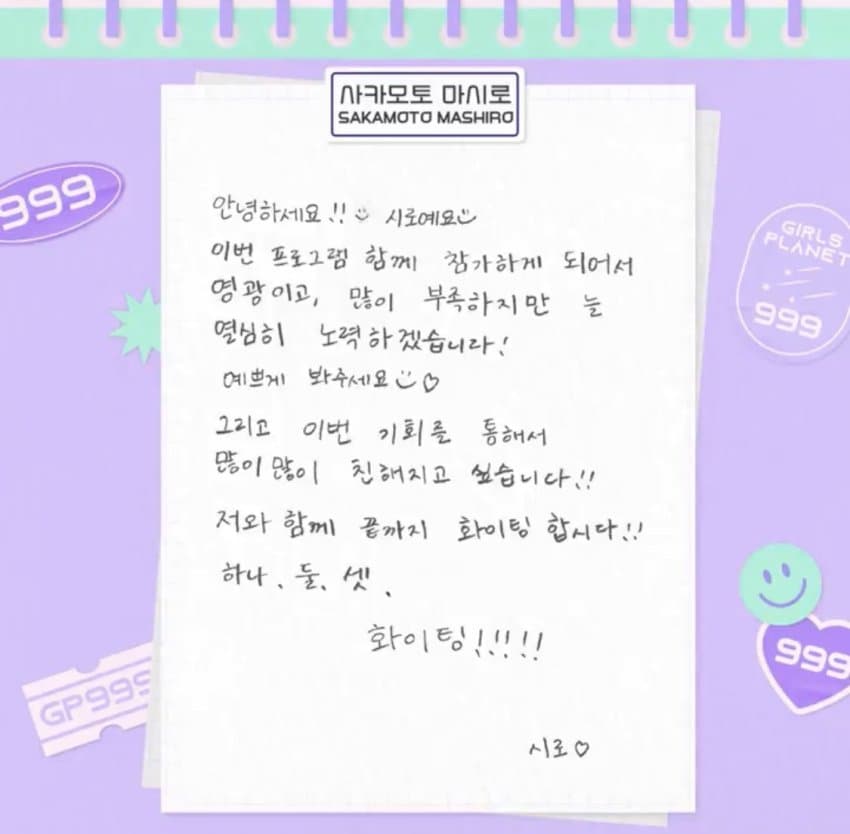 사카모토 마시로
SAKAMOTO MASHIRO
999
안녕하세요!! 시로예요
이번 프로그램 함께 참가하게 되어서
영광이고, 많이 부족하지만 늘
열심히 노력하겠습니다!
예쁘게 봐주세요 ♡
그리고 이번 기회를 통해서
많이많이 친해지고 싶습니다!!
저와 함께 끝까지 화이팅 합시다!!
하나. 둘. 셋.
화이팅!!!!!
시로♡
GIRLS
PLANET
999
999
GP999